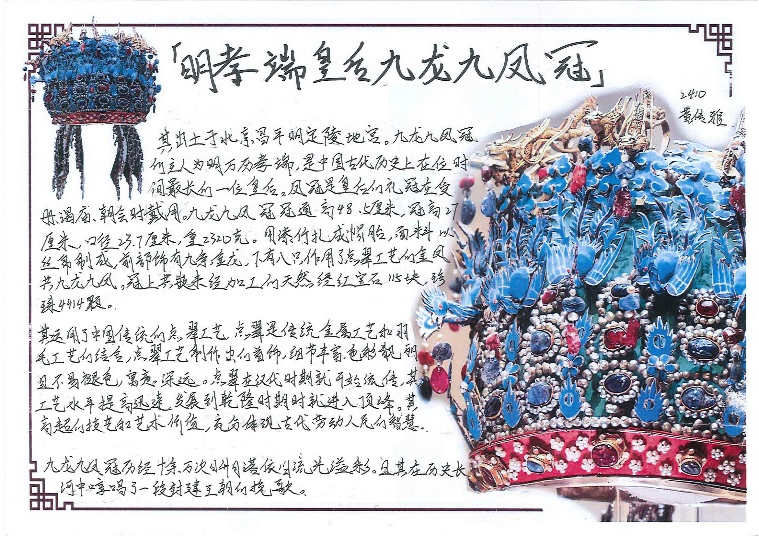 「明孝端皇后九龙九凤冠」
2410
黄倩雅
其出土于北京昌平明定陵地宫。九龙九凤冠
的主人为明万历孝端,是中国古代历史上在位时
间最长的一位皇后。凤冠是皇后的礼冠在受
册、谒庙、朝会时戴用。九龙九凤冠冠通高48.5厘米,冠高27
厘米,口径23.7厘米,重2320克。用漆竹扎成帽胎,面料以
丝帛制成,前部饰有九条金龙,下有八只作用了点翠工艺的金凤
共九龙九凤。冠上共嵌未经加工的天然红宝石115块,珍
珠4414颗。
其运用了中国传统的点翠工艺,点翠是传统金属工艺和羽
毛工艺的结合,点翠工艺制作出的首饰,细节丰富,色彩靓丽
且不易褪色,寓意深远。点翠在汉代时期就开始流传,其
工艺水平提高迅速,发展到乾隆时期时就进入顶峰。其
高超的技艺和艺术价值,充分体现古代劳动人民的智慧。
九龙九凤冠历经十余万次日升月落依旧流光溢彩。且其在历史长
河中吟唱了一段封建王朝的挽歌。